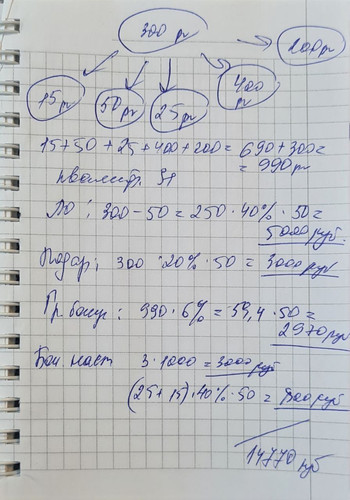 300 pv
200 pv
15 pv 50 pv 25 pv 400 pv
15+50+25+400+200=690+300=
=990 pv
квалиф. ЗП
ЛО: 300-50=250·40%·50=
5000 руб.
Подар; 300·20%·50=3000 руб
Пр. бонус: 990·6%=59,4·50=
2970 руб
Бон. наст 3·1000=3000 руб
(25+15)·40%·50=800 руб
14770 руб